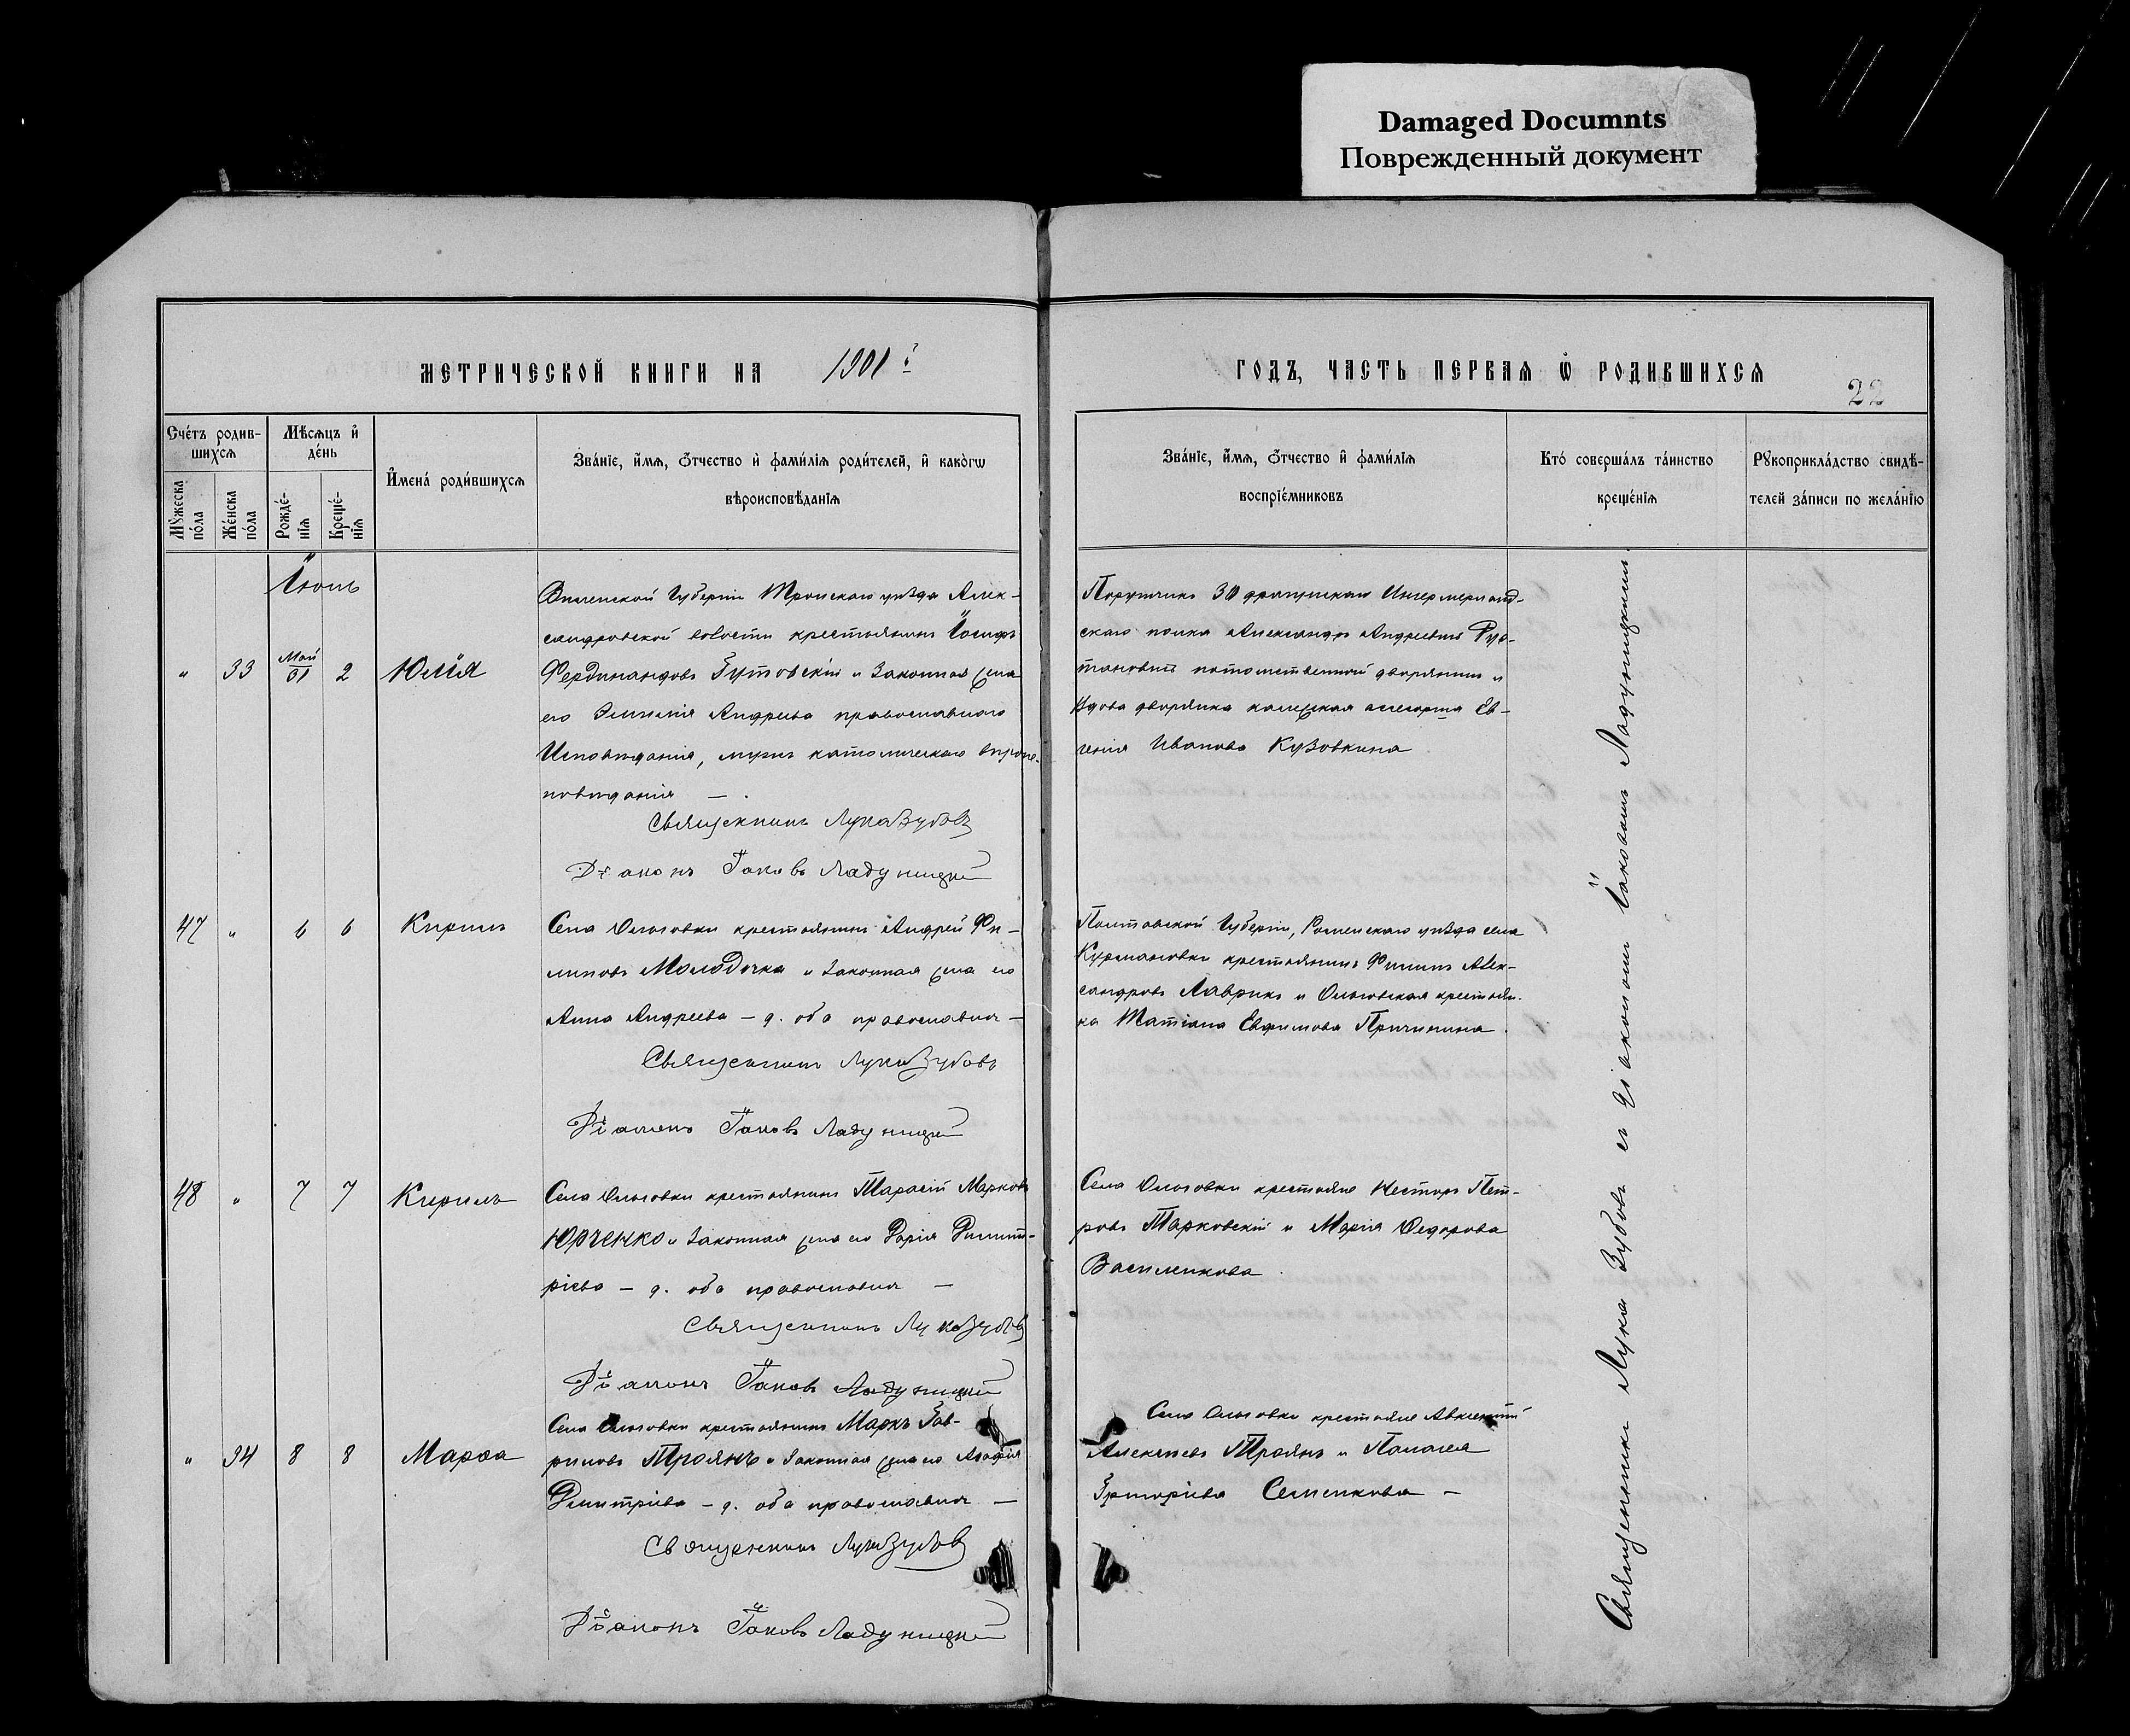 Damaged Documnts
Поврежденный документ
МЕТРИЧЕСКОЙ КНИГИ НА 1901й
ГОДЪ, ЧАСТЬ ПЕРВАЯ Ѡ РОДИВШИХСЯ
22
Счéтъ родив-
шихся
Мꙋ́жеска
по́ла
Же́нска
по́ла
Мѣсяцъ и҆
де́нь
Рожде́-
нїя
Креще́-
нїя
И҆мена́ роди́вшихся
Зва́нїе, и҆́мя, ѻ҆́тчество и҆ фами́лїя роди́телей, и҆ како́гѡ
вѣроисповѣ́данїя
Зва́нїе, и҆́мя, ѻ҆́тчество и҆ фами́лїя
воспрїе́мниковъ
Кто́ соверша́лъ та́инство
креще́нїя
Рꙋкоприкла́дство свидѣ́-
телей за́писи по жела́нїю
Іюнь
" 33 Май 31 2 Юлія
Виленской Губерніи Трокскаго уѣзда Алек-
сандровской волости крестьянинъ Іосифъ
Фердинандовъ Гутовскій и Законная жена
его Эмилія Андреева православнаго
Исповѣданія, мужъ католическаго вѣроис-
повѣданія —.
Священникъ Лука Зубовъ
Діаконъ Іаковъ Ладухицкій
Поручикъ 30 драгунскаго Ингермерланд-
скаго полка Александръ Андреевичъ Рус-
тановичъ потомственный дворянинъ и
Вдова дворянка ассесорша Ев-
генія Иванова Кузовкина
47 " 6 6 Кирилъ
Села Ольговки крестьянинъ Андрей Фи-
липовъ Молодочка и Законная жена его
Анна Андреева — д. оба православн —
Священникъ Лука Зубовъ
Діаконъ Іаковъ Ладухицкій
Полтавской Губерніи, Роменскаго уѣзда села
Курмановки крестьянинъ Филипъ Алек-
сандровъ Лаврикъ и Ольговская крестьян-
ка Татіана Евфимова Причинина
48 " 7 7 Кирилъ
Села Ольговки крестьянинъ Тарасій Марковъ
Юрченко и Законная жена его Дарія Димит-
ріева — д. оба православн —
Священникъ Лука Зубовъ
Діаконъ Іаковъ Ладухицкій
Села Ольговки крестьяне Несторъ Пет-
ровъ Тарковскій и Марія Федорова
Василенкова
" 34 8 8 Марѳа
Села Ольговки крестьянинъ Маркъ Гав-
риловъ Троянъ и Законная жена его Агафія
Димитріева — д. оба православн —
Священникъ Лука Зубовъ
Діаконъ Іаковъ Ладухицкій
Села Ольговки крестьяне Авксентій
Алексѣевъ Троянъ и Палагея
Григоріева Семенкова —
Священникъ Лука Зубовъ съ діакономъ Іаковомъ Ладухицкимъ